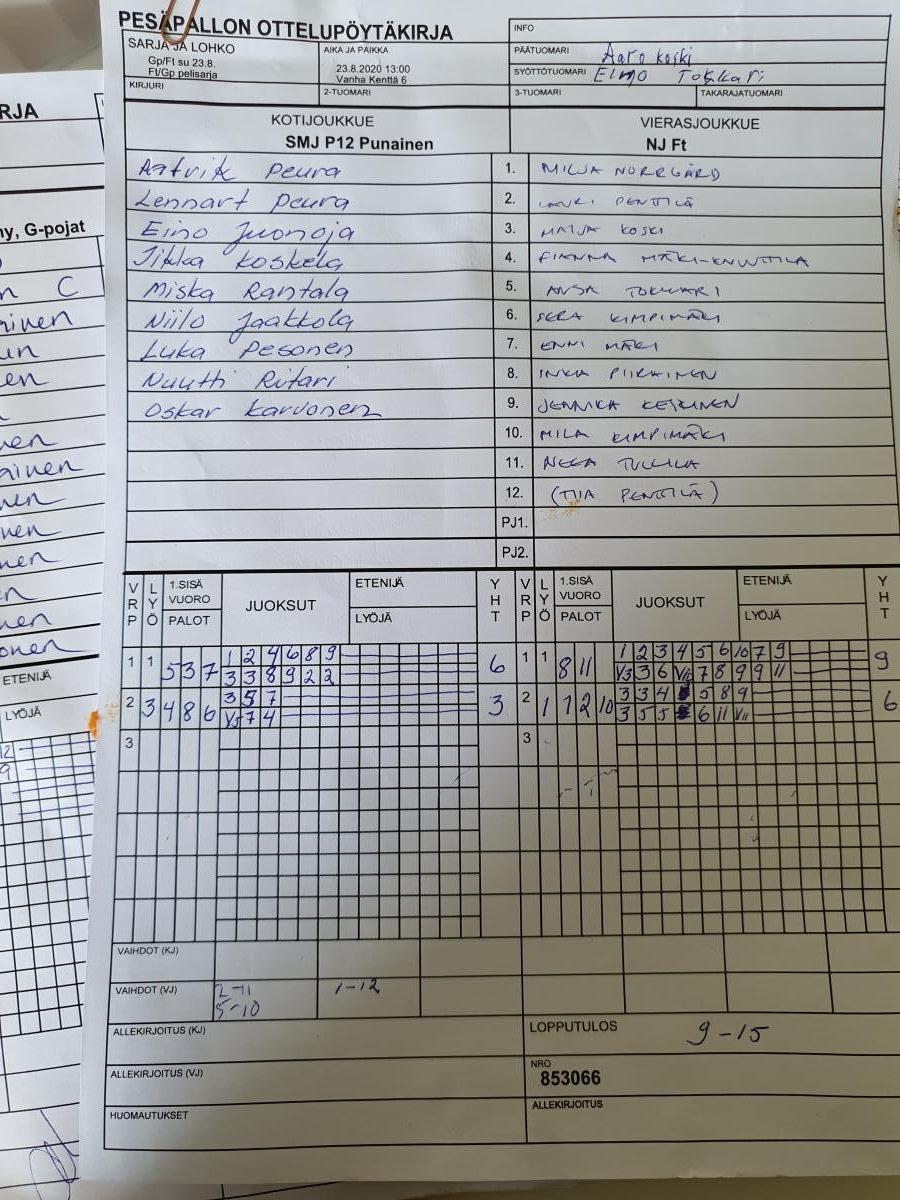 PESÄPALLON OTTELUPÖYTÄKIRJA
INFO
SARJA JA LOHKO
Gp/Ft su 23.8.
Ft/Gp pelisarja
AIKA JA PAIKKA
23.8.2020 13:00
Vanha Kenttä 6
PÄÄTUOMARI Aaro koski
SYÖTTÖTUOMARI Elmo Tokkari
KIRJURI
2-TUOMARI
3-TUOMARI
TAKARAJATUOMARI
KOTIJOUKKUE
SMJ P12 Punainen
VIERASJOUKKUE
NJ Ft
Aatrik Peura 1. MILJA NORRGÅRD
Lennart Peura 2. LAURI PENTTILÄ
Eino Juonoja 3. MAIJA KOSKI
Jikka Koskela 4. FIANNA MÄKI-KNUUTTILA
Miska Rantala 5. ANSA TOKKARI
Niilo Jaakkola 6. SERA KIMPIMÄKI
Luka Pesonen 7. ENNI MÄKI
Nuutti Ritari 8. INKA PIIRAINEN
Oskar Karvonen 9. JENNIKA KESKINEN
10. MILA KIMPIMÄKI
11. NEEA
12. (TIIA PENTTILÄ)
PJ1.
PJ2.
VRP LYÖ 1.SISÄ VUORO PALOT JUOKSUT ETENIJÄ LYÖJÄ YHT VRP LYÖ 1.SISÄ VUORO PALOT JUOKSUT ETENIJÄ LYÖJÄ YHT
1 1 5 3 7 1 2 4 6 8 9 6 1 1 8 11 1 2 3 4 5 6 10 7 9 9
3 3 8 9 2 2 V3 3 6 VII 7 8 9 9 11
2 3 4 8 6 3 5 7 3 2 1 1 2 10 3 3 4 5 8 9 6
V5 7 4 3 5 5 6 11 VII
3 3
VAIHDOT (KJ)
VAIHDOT (VJ) 2-11 1-12
5-10
ALLEKIRJOITUS (KJ)
LOPPUTULOS 9-15
ALLEKIRJOITUS (VJ)
NRO
853066
HUOMAUTUKSET
ALLEKIRJOITUS
RJA
ny, G-pojat
n C
ainen
ETENIJÄ
LYÖJÄ